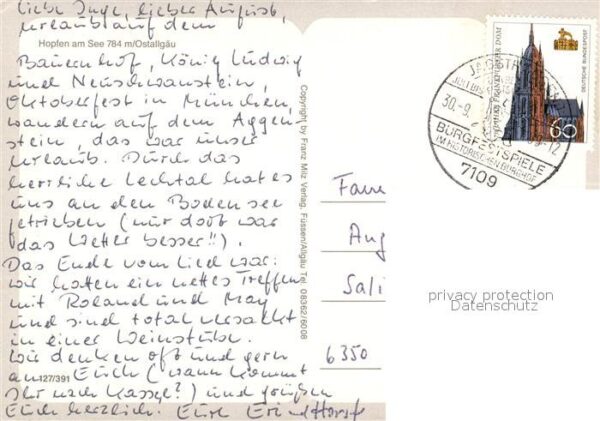 Liebe Inge, lieber August,
Urlaub auf dem
Hopfen am See 784 m/Ostallgäu
Bauernhof, König Ludwig
und Neuschwanstein,
Oktoberfest in München,
wandern auf dem Aggen-
stein, das war unser
Urlaub. Durch das
herrliche Lechtal hat es
uns an den Bodensee
getrieben (nur dort war
das Wetter besser!!).
Das Ende vom Lied war:
wir hatten ein nettes Treffen
mit Roland und May
und sind total versackt
in einer Weinstube.
Wir denken oft und gern
an Euch (wann kommt
127/391
Ihr nach Kassel?) und grüßen
Euch herzlich. Eure
Copyright by Franz Milz Verlag, Füssen/Allgäu Tel. 08362/6008
DEUTSCHE BUNDESPOST
FRANKFURTER DOM
60
30.-9.
-12
BURGFESTSPIELE
IM HISTORISCHEN BURGHOF
7109
Fam
Aug
Sali
6350
privacy protection
Datenschutz